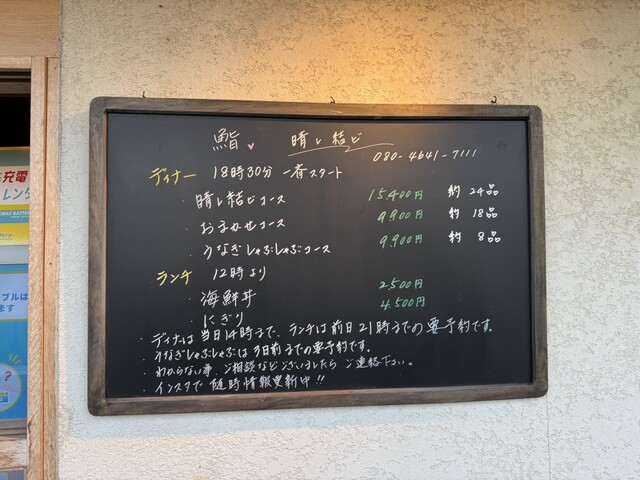 鮨 晴レ結ビ
080-4641-7111
ディナー 18時30分 一斉スタート
・晴レ結ビコース 15,400円 約24品
・おまかせコース 9,900円 約18品
・うなぎしゃぶしゃぶコース 9,900円 約8品
ランチ 12時より
・海鮮丼 2,500円
・にぎり 4,500円
・ディナーは当日14時まで、ランチは前日21時までの要予約です。
・うなぎしゃぶしゃぶは3日前までの要予約です。
・わからない事、ご相談などございましたら ご連絡下さい。
・インスタで随時情報更新中!!
充電
レン
MOBILE BATTERY
ブルは
ます
?